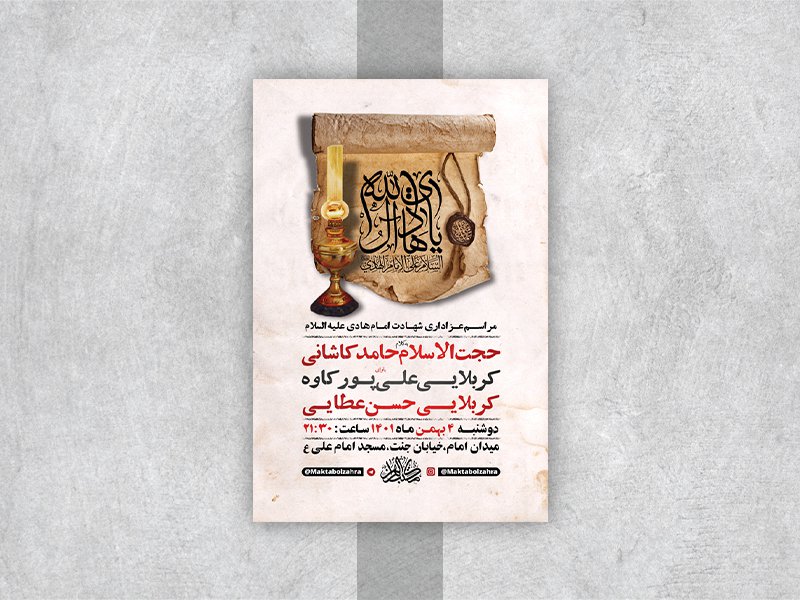 یا هادی آل الله
السلام علی الامام الهادی
مراسم عزاداری شهادت امام هادی علیه السلام
حجت الاسلام حامد کاشانی
کربلایی علی پور کاوه
کربلایی حسن عطایی
دوشنبه ۴ بهمن ماه ۱۴۰۱ ساعت: ۲۱:۳۰
میدان امام،خیابان جنت،مسجد امام علی ع
@Maktabolzahra @Maktabolzahra